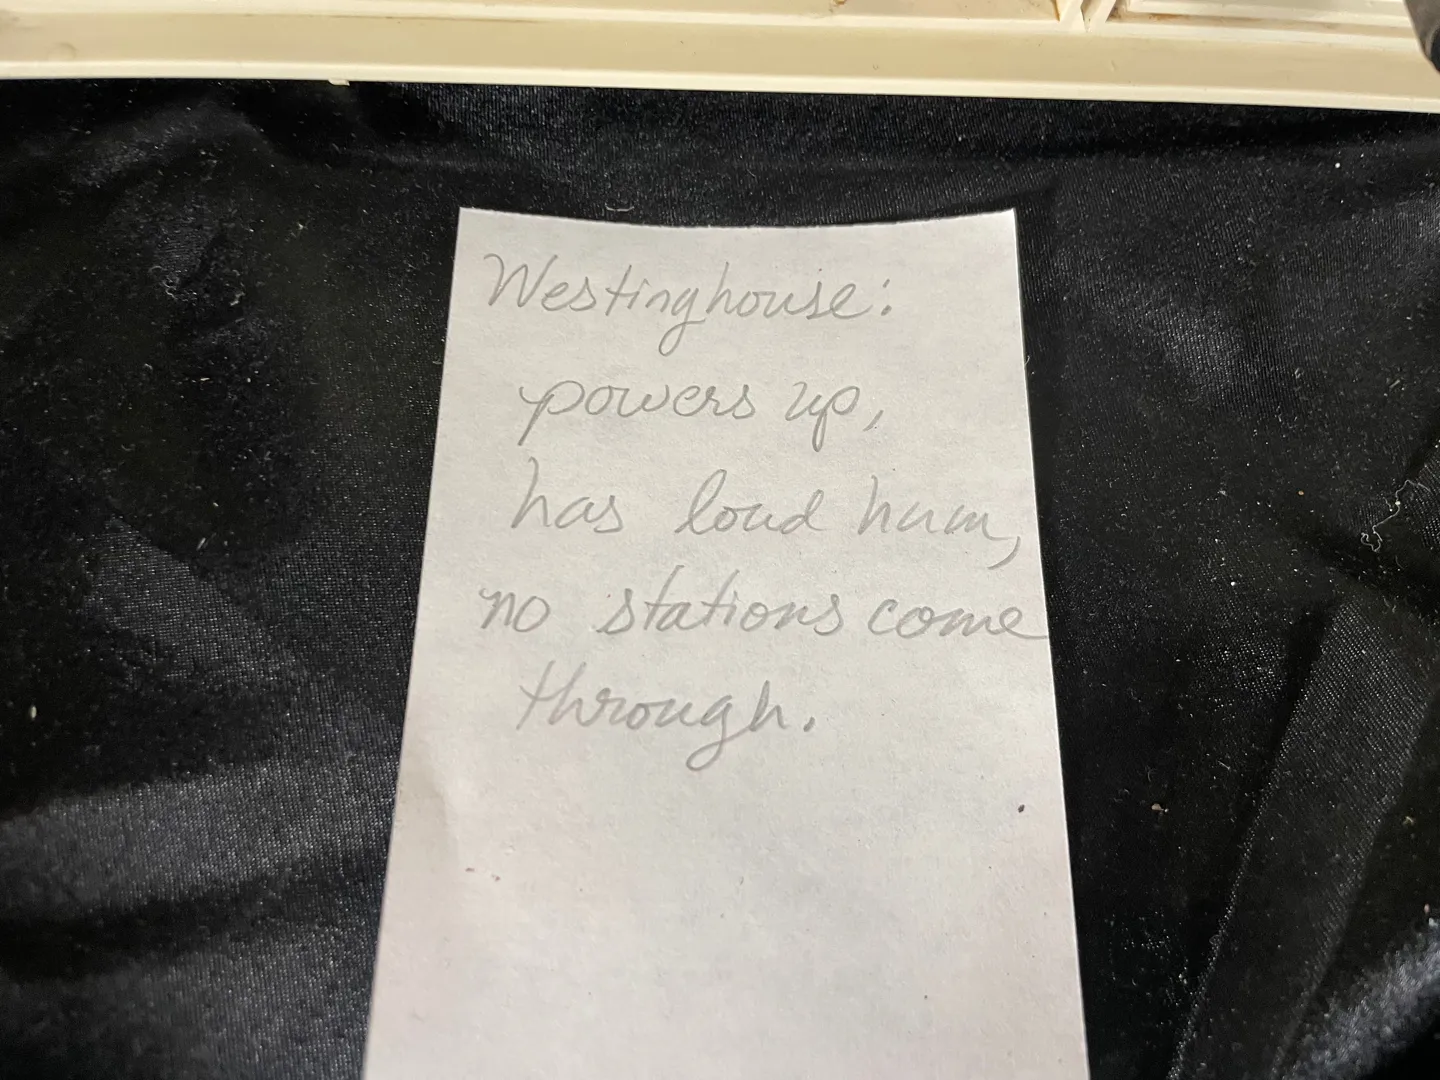 Westinghouse:
powers up,
has loud hum,
no stations come
through.